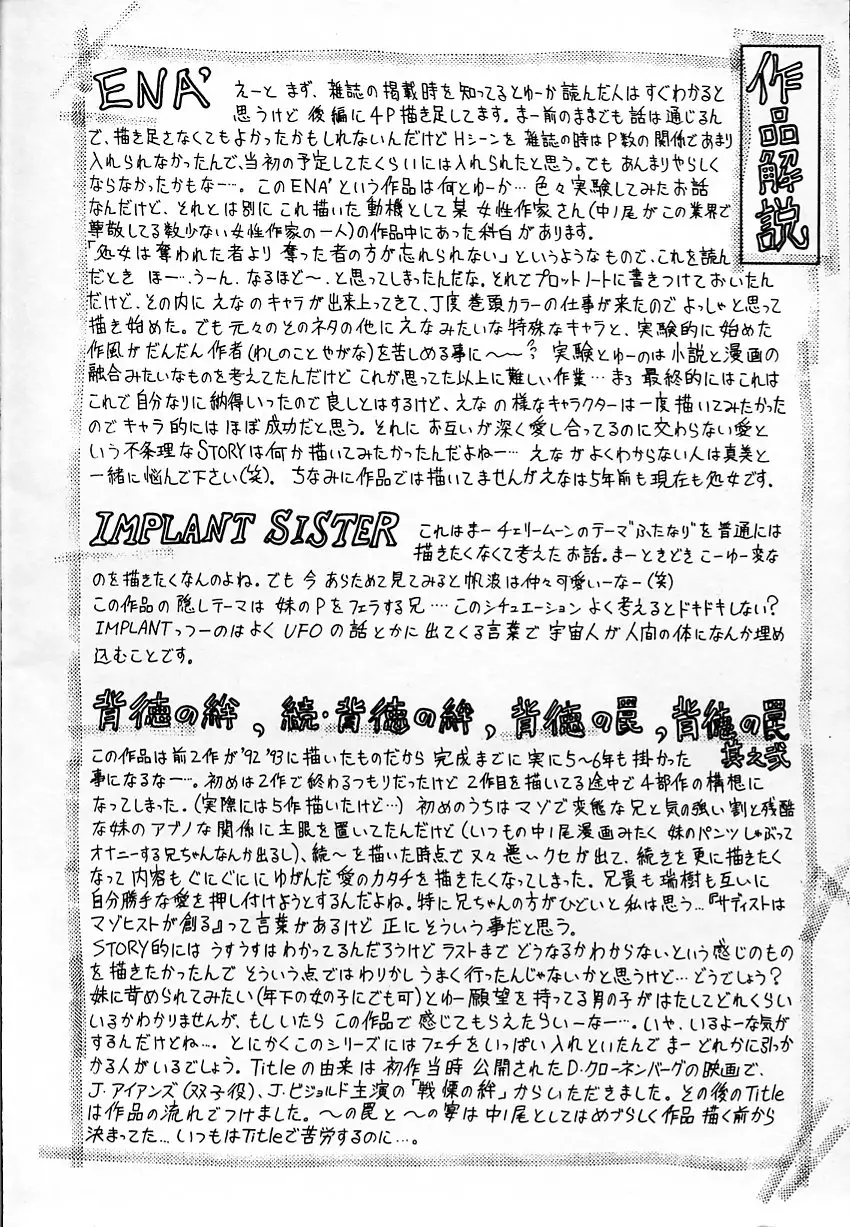 作品解説
ENA' えーと まず、雑誌の掲載時を知ってるとゆーか読んだ人はすぐわかると
思うけど 後編に4P描き足してます。まー前のままでも話は通じるん
で、描き足さなくてもよかったかもしれないんだけど Hシーンを 雑誌の時はP数の関係であまり
入れられなかったんで、当初の予定してたくらいには入れられたと思う。でも あんまりやらしく
ならなかったかもなー…。このENA'という作品は何とゆーか…色々実験してみたお話
なんだけど、それとは別に これ描いた動機として某 女性作家さん(中ノ尾がこの業界で
尊敬してる数少ない女性作家の一人)の作品中にあった科白があります。
「処女は奪われた者より 奪った者の方が忘れられない」というようなもので、これを読ん
だとき ほー…、うーん、なるほど〜、と思ってしまったんだな。それでプロットノートに書きつけておいたん
だけど、その内に えなのキャラが出来上ってきて、丁度 巻頭カラーの仕事が来たので よっしゃと思って
描き始めた。でも元々のそのネタの他に えなみたいな特殊なキャラと、実験的に始めた
作風がだんだん作者(わしのことやがな)を苦しめる事に〜〜? 実験とゆーのは小説と漫画の
融合みたいなものを考えてたんだけど これが思ってた以上に難しい作業…まぁ 最終的にはこれは
これで自分なりに納得いったので良しとはするけど、えなの様なキャラクターは一度描いてみたかった
のでキャラ的には ほぼ成功だと思う。それに お互いが深く愛し合ってるのに交わらない愛と
いう不条理なSTORYは何か描いてみたかったんだよねー…えながよくわからない人は真美と
一緒に悩んで下さい(笑)。ちなみに作品では描いてませんがえなは5年前も現在も処女です。
IMPLANT SISTER これはまー チェリームーンのテーマ"ふたなり"を普通には
描きたくなくて考えたお話。まーときどき こーゆー変な
のを描きたくなんのよね。でも 今 あらためて見てみると帆波は仲々可愛いーなー(笑)
この作品の隠しテーマは 妹のPをフェラする兄‥‥このシチュエーション よく考えるとドキドキしない?
IMPLANTっつーのはよく UFOの話とかに出てくる言葉で 宇宙人が人間の体になんか埋め
込むことです。
背徳の絆, 続・背徳の絆, 背徳の罠, 背徳の罠
其之弐
この作品は前2作が'92 '93に描いたものだから 完成までに実に5〜6年も掛かった
事になるなー…。初めは2作で終わるつもりだったけど 2作目を描いてる途中で4部作の構想に
なってしまった。(実際には5作描いたけど…) 初めのうちはマゾで変態な兄と気の強い割と残酷
な妹のアブノな関係に主眼を置いてたんだけど(いつもの中ノ尾漫画みたく 妹のパンツしゃぶって
オナニーする兄ちゃんなんか出るし)、続〜を描いた時点で又々悪いクセが出て、続きを更に描きたく
なって 内容もぐにぐにに ゆがんだ愛のカタチを描きたくなってしまった。兄貴も瑞樹も互いに
自分勝手な愛を押し付けようとするんだよね。特に兄ちゃんの方がひどいと私は思う…『サディストは
マゾヒストが創る』って言葉があるけど 正にそういう事だと思う。
STORY的には うすうすはわかってるんだろうけど ラストまで どうなるかわからないという感じのもの
を描きたかったんで そういう点ではわりかしうまく行ったんじゃないかと思うけど…どうでしょう?
妹に苛められてみたい(年下の女の子にでも可)とゆー願望を持ってる男の子がはたしてどれくらい
いるかわかりませんが、もしいたら この作品で感じてもらえたらいーなー…。いや、いるよーな気が
するんだけどね…。とにかくこのシリーズにはフェチをいっぱい入れといたんで まー どれかに引っか
かる人がいるでしょう。Titleの由来は 初作当時 公開されたD・クローネンバーグの映画で、
J.アイアンズ(双子役)、J.ビジョルド主演の「戦慄の絆」からいただきました。その後のTitle
は作品の流れでつけました。〜の罠と〜の宴は中ノ尾としてはめづらしく作品描く前から
決まってた…いつもはTitleで苦労するのに…。